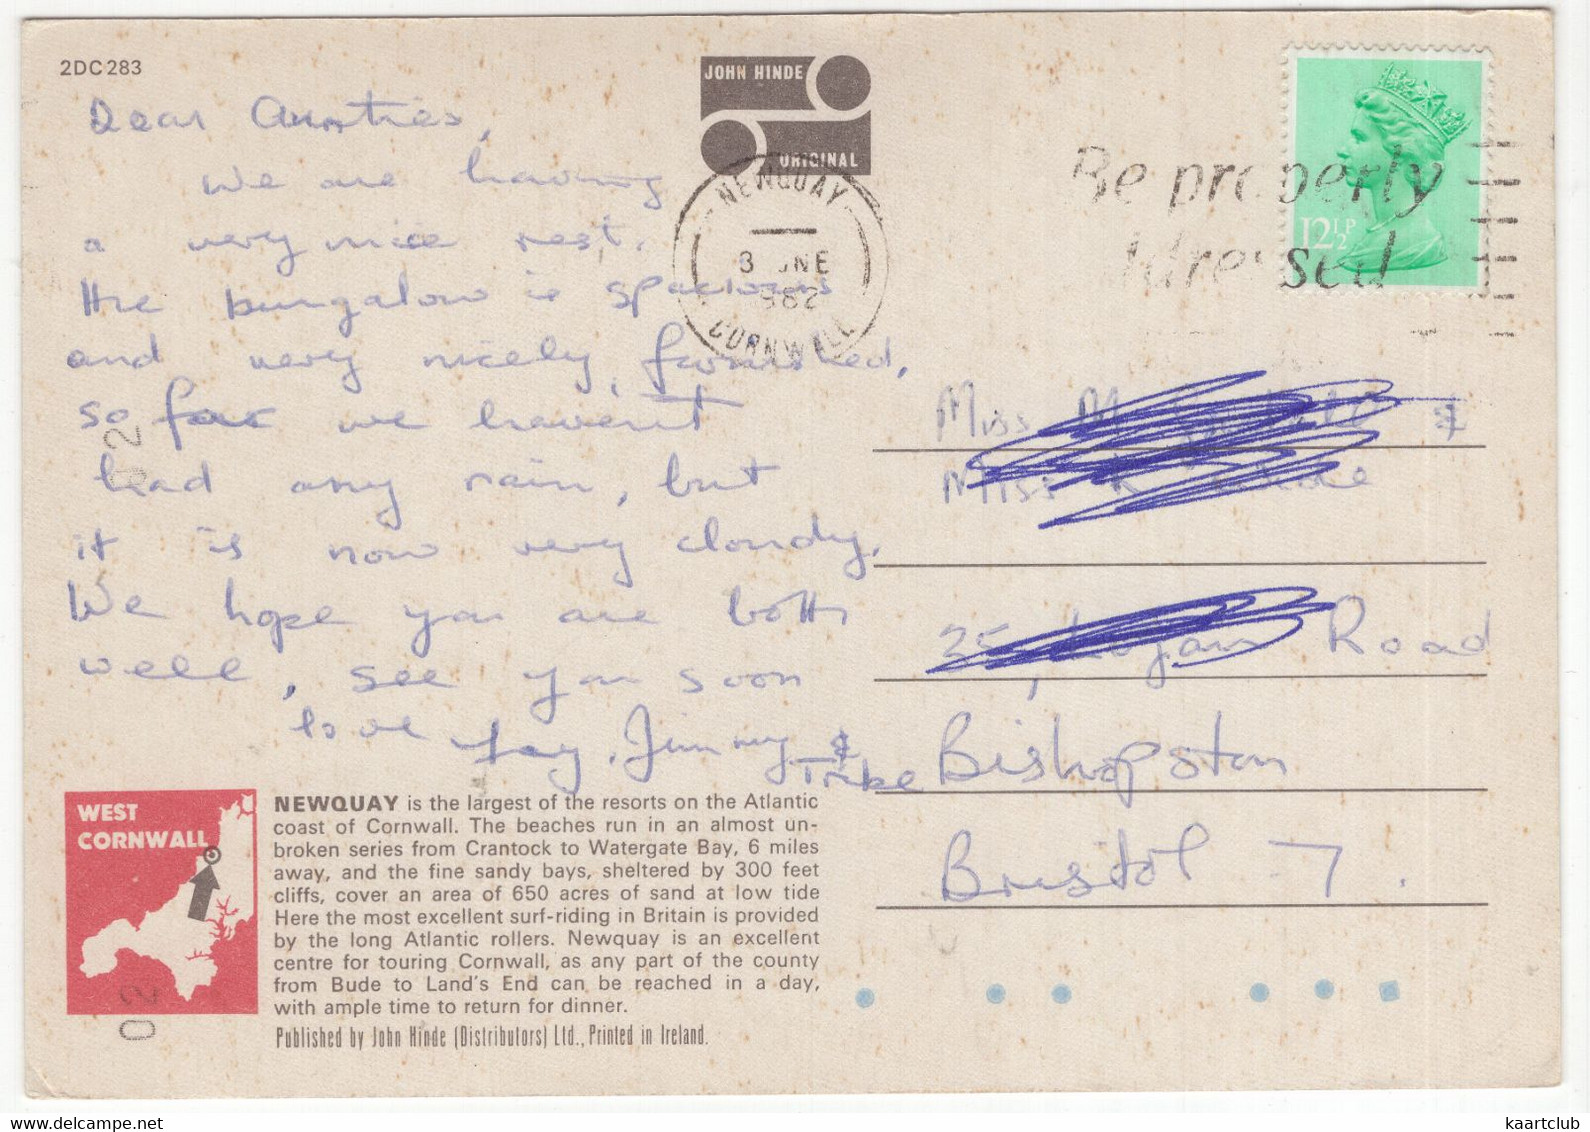 2DC283
JOHN HINDE
ORIGINAL
Dear Aunties,
We are having
a very nice rest,
the bungalow is spacious
and very nicely furnished,
so far we haven't
had any rain, but
it is now very cloudy,
We hope you are both
well, see you soon
love
Jimmy &
Tribe
NEWQUAY
CORNWALL
Be properly
12½P
Miss M &
Miss K
Road
Bishopston
Bristol 7.
WEST
CORNWALL
NEWQUAY is the largest of the resorts on the Atlantic
coast of Cornwall. The beaches run in an almost un-
broken series from Crantock to Watergate Bay, 6 miles
away, and the fine sandy bays, sheltered by 300 feet
cliffs, cover an area of 650 acres of sand at low tide
Here the most excellent surf-riding in Britain is provided
by the long Atlantic rollers. Newquay is an excellent
centre for touring Cornwall, as any part of the county
from Bude to Land's End can be reached in a day,
with ample time to return for dinner.
Published by John Hinde (Distributors) Ltd., Printed in Ireland.
kaartclub